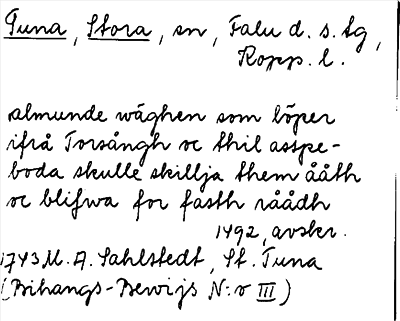 Tuna, Stora, sn, Falu d. s. tg,
Kopp. l.
almunde wäghen som löper
ifrå Torsångh oc thil aspe-
boda skulle skillja them ååth
oc blifwa for fasth råådh
1492, avskr.
1743 M. A. Sahlstedt, St. Tuna
(Bihangs-Bewijs N:o III)